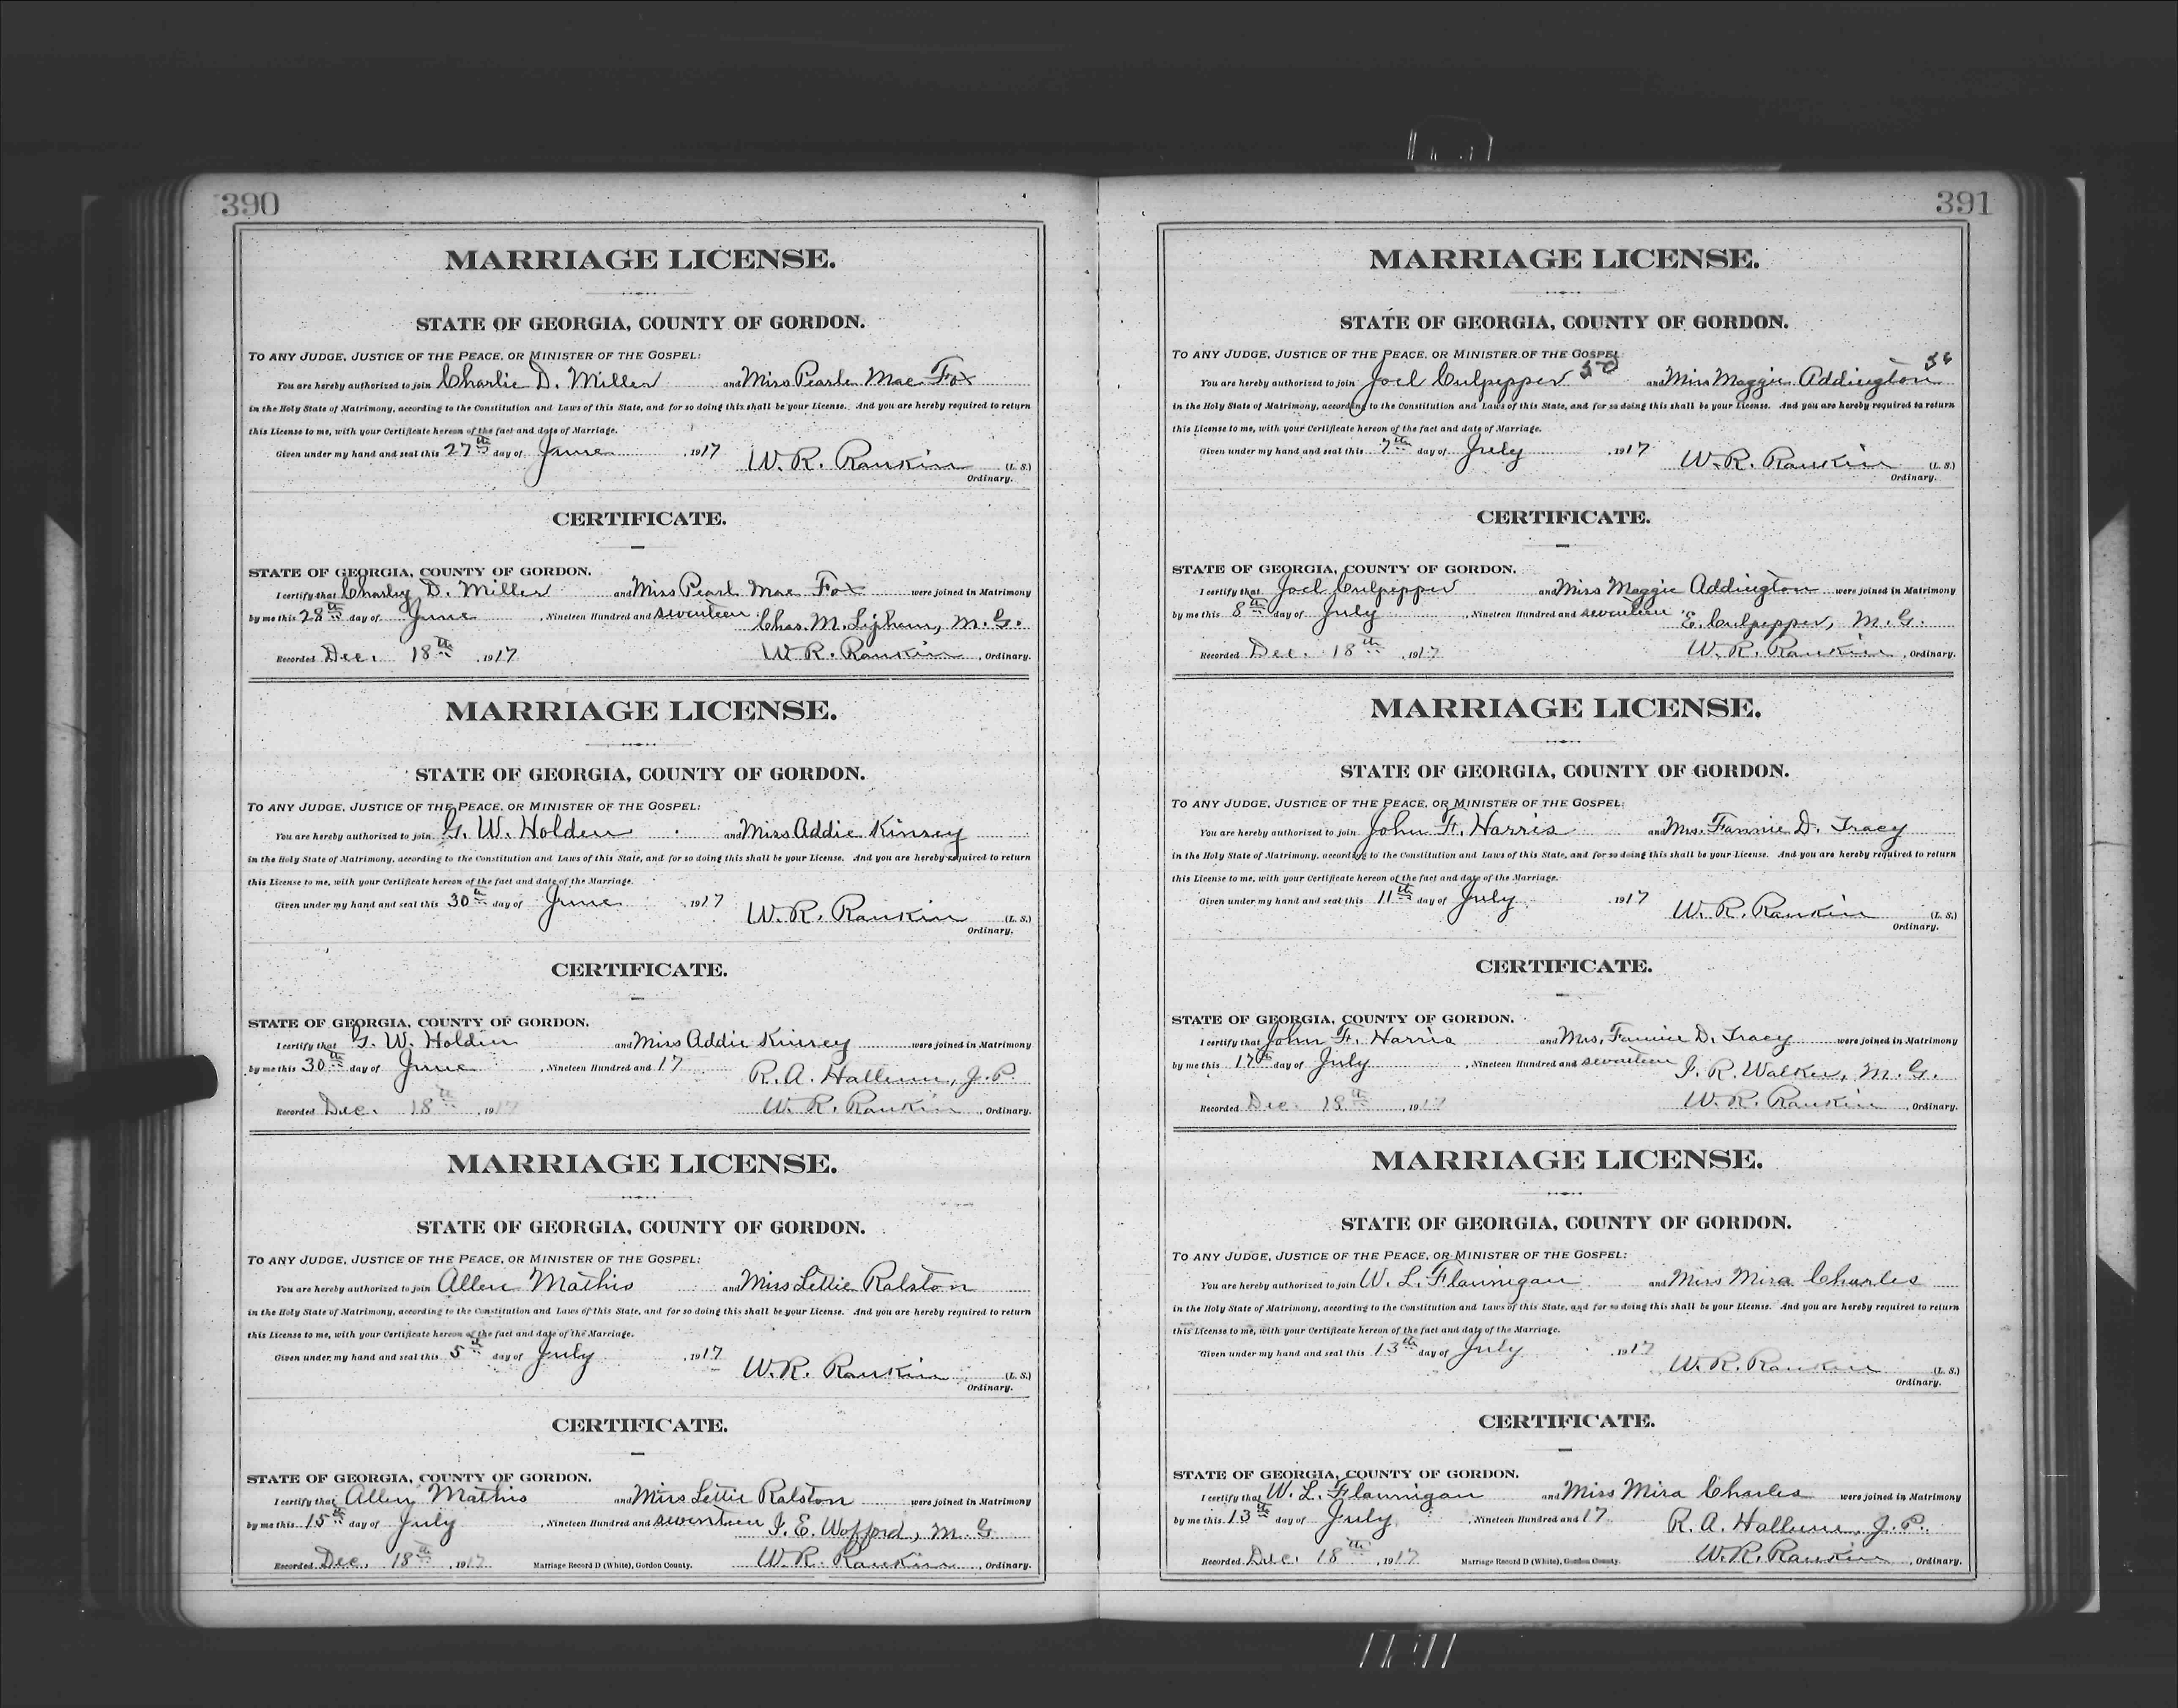 390
MARRIAGE LICENSE.
STATE OF GEORGIA, COUNTY OF GORDON.
TO ANY JUDGE, JUSTICE OF THE PEACE, OR MINISTER OF THE GOSPEL:
You are hereby authorized to join Charlie D. Miller and Miss Pearle Mae Fox
in the Holy State of Matrimony, according to the Constitution and Laws of this State, and for so doing this shall be your License. And you are hereby required to return
this License to me, with your Certificate hereon of the fact and date of Marriage.
Given under my hand and seal this 27th day of June, 1917 W. R. Rankin (L. S.)
Ordinary.
CERTIFICATE.
STATE OF GEORGIA, COUNTY OF GORDON.
I certify that Charley D. Miller and Miss Pearl Mae Fox were joined in Matrimony
by me this 28th day of June, Nineteen Hundred and seventeen Chas. M. Lipham, M. G.
Recorded Dec. 18th, 1917 W. R. Rankin, Ordinary.
MARRIAGE LICENSE.
STATE OF GEORGIA, COUNTY OF GORDON.
TO ANY JUDGE, JUSTICE OF THE PEACE, OR MINISTER OF THE GOSPEL:
You are hereby authorized to join G. W. Holden and Miss Addie Kinsey
in the Holy State of Matrimony, according to the Constitution and Laws of this State, and for so doing this shall be your License. And you are hereby required to return
this License to me, with your Certificate hereon of the fact and date of the Marriage.
Given under my hand and seal this 30th day of June, 1917 W. R. Rankin (L. S.)
Ordinary.
CERTIFICATE.
STATE OF GEORGIA, COUNTY OF GORDON.
I certify that G. W. Holden and Miss Addie Kinsey were joined in Matrimony
by me this 30th day of June, Nineteen Hundred and 17 R. A. Hallum, J. P.
Recorded Dec. 18th, 1917 W. R. Rankin, Ordinary.
MARRIAGE LICENSE.
STATE OF GEORGIA, COUNTY OF GORDON.
TO ANY JUDGE, JUSTICE OF THE PEACE, OR MINISTER OF THE GOSPEL:
You are hereby authorized to join Allen Mathis and Miss Lettie Ralston
in the Holy State of Matrimony, according to the Constitution and Laws of this State, and for so doing this shall be your License. And you are hereby required to return
this License to me, with your Certificate hereon of the fact and date of the Marriage.
Given under my hand and seal this 5 day of July, 1917 W. R. Rankin (L. S.)
Ordinary.
CERTIFICATE.
STATE OF GEORGIA, COUNTY OF GORDON.
I certify that Allen Mathis and Miss Lettie Ralston were joined in Matrimony
by me this 15th day of July, Nineteen Hundred and seventeen J. E. Wofford, M. G
Recorded Dec. 18th, 1917 Marriage Record D (White), Gordon County. W. R. Rankin, Ordinary.
391
MARRIAGE LICENSE.
STATE OF GEORGIA, COUNTY OF GORDON.
TO ANY JUDGE, JUSTICE OF THE PEACE, OR MINISTER OF THE GOSPEL:
You are hereby authorized to join Joel Culpepper 50 and Miss Maggie Addington
in the Holy State of Matrimony, according to the Constitution and Laws of this State, and for so doing this shall be your License. And you are hereby required to return
this License to me, with your Certificate hereon of the fact and date of the Marriage.
Given under my hand and seal this 7th day of July, 1917 W. R. Rankin (L. S.)
Ordinary.
CERTIFICATE.
STATE OF GEORGIA, COUNTY OF GORDON.
I certify that Joel Culpepper and Miss Maggie Addington were joined in Matrimony
by me this 8th day of July, Nineteen Hundred and seventeen E. Culpepper, M. G.
Recorded Dec. 18th, 1917 W. R. Rankin, Ordinary.
MARRIAGE LICENSE.
STATE OF GEORGIA, COUNTY OF GORDON.
TO ANY JUDGE, JUSTICE OF THE PEACE, OR MINISTER OF THE GOSPEL:
You are hereby authorized to join John F. Harris and Mrs. Fannie D. Tracy
in the Holy State of Matrimony, according to the Constitution and Laws of this State, and for so doing this shall be your License. And you are hereby required to return
this License to me, with your Certificate hereon of the fact and date of the Marriage.
Given under my hand and seal this 11th day of July, 1917 W. R. Rankin (L. S.)
Ordinary.
CERTIFICATE.
STATE OF GEORGIA, COUNTY OF GORDON.
I certify that John F. Harris and Mrs. Fannie D. Tracy were joined in Matrimony
by me this 17th day of July, Nineteen Hundred and seventeen J. R. Walker, M. G.
Recorded Dec. 18th, 1917 W. R. Rankin, Ordinary.
MARRIAGE LICENSE.
STATE OF GEORGIA, COUNTY OF GORDON.
TO ANY JUDGE, JUSTICE OF THE PEACE, OR MINISTER OF THE GOSPEL:
You are hereby authorized to join W. L. Flannigan and Miss Mira Charles
in the Holy State of Matrimony, according to the Constitution and Laws of this State, and for so doing this shall be your License. And you are hereby required to return
this License to me, with your Certificate hereon of the fact and date of the Marriage.
Given under my hand and seal this 13th day of July, 1917 W. R. Rankin (L. S.)
Ordinary.
CERTIFICATE.
STATE OF GEORGIA, COUNTY OF GORDON.
I certify that W. L. Flannigan and Miss Mira Charles were joined in Matrimony
by me this 13th day of July, Nineteen Hundred and 17 R. A. Hallum, J. P.
Recorded Dec. 18th, 1917 Marriage Record D (White), Gordon County. W. R. Rankin, Ordinary.